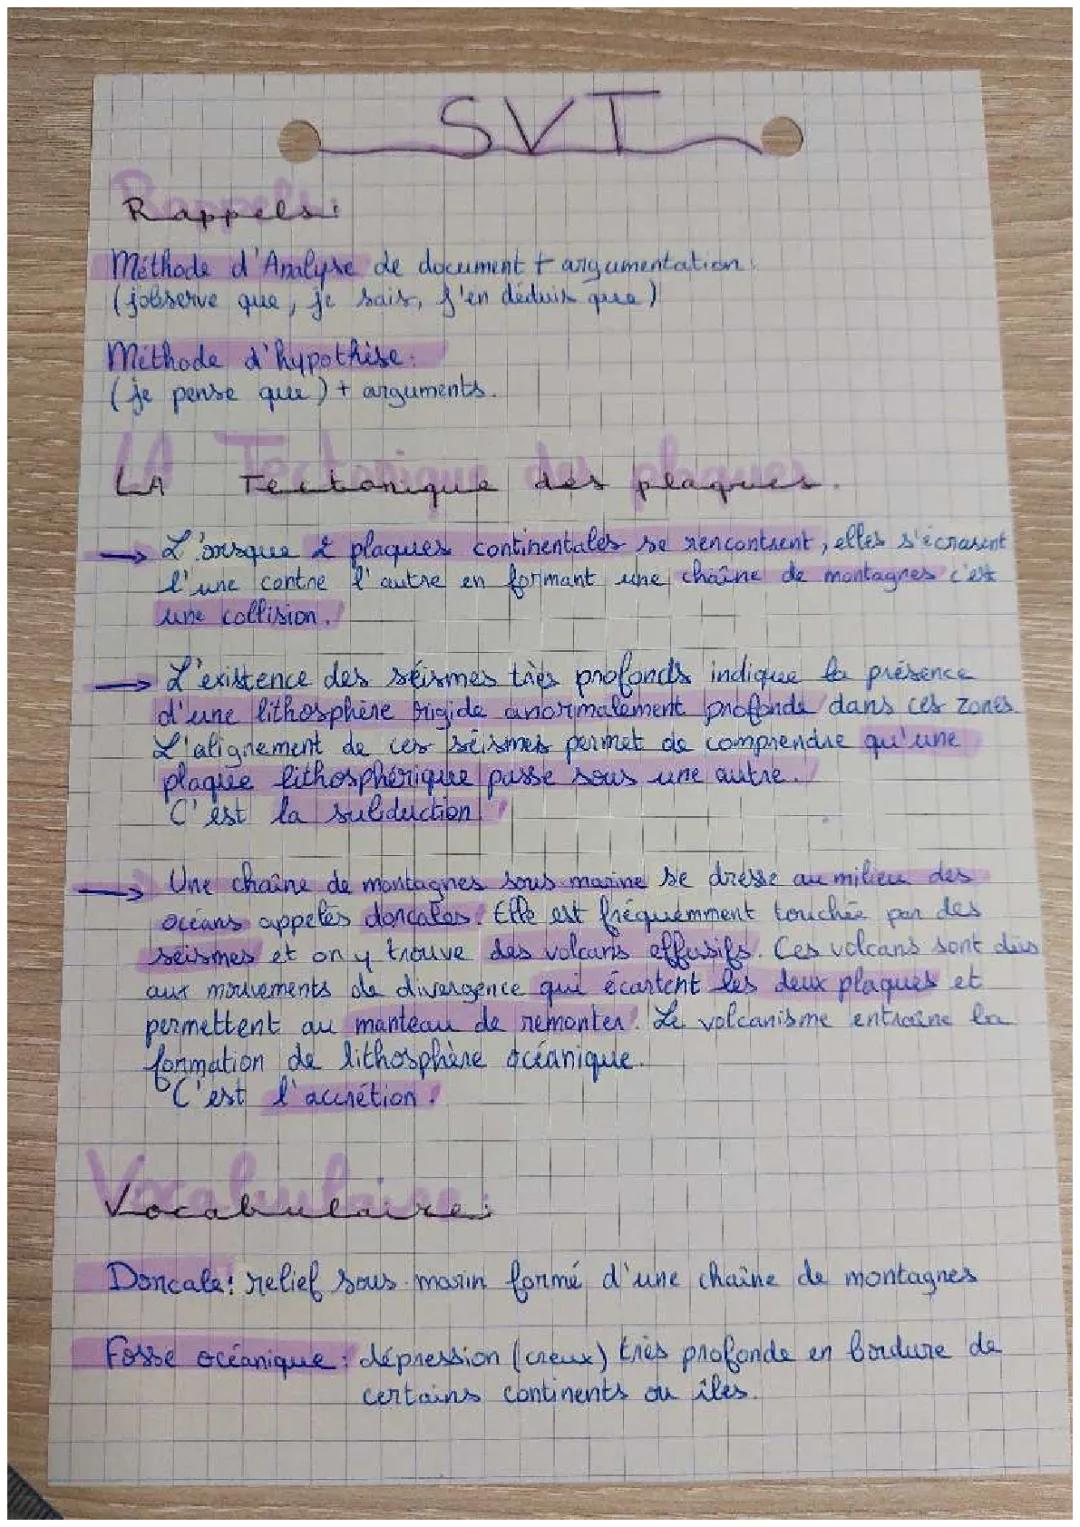 SVT
Rappels:
Méthode d'Analyse de document + argumentation:
(j'observe que, je sais, j'en déduis que)
Méthode d'hypothèse:
(je pense que) + arguments.
LA Tectonique des plaques.
→ L'orsque 2 plaques continentales se rencontrent, elles s'écrasent
l'une contre l'autre en formant une chaîne de montagnes c'est
une collision.
→ L'existence des séismes très profonds indique la présence
d'une lithosphère rigide anormalement profonde dans ces zones.
L'alignement de ces séismes permet de comprendre qu'une
plaque lithosphérique passe sous une autre.
C'est la subduction
→ Une chaîne de montagnes sous-marine se dresse au milieu des
océans appelés dorcales. Elle est fréquemment touchée par des
séismes et on y trouve des volcans effusifs. Ces volcans sont dûs
aux mouvements de divergence qui écartent les deux plaques et
permettent au manteau de remonter. Le volcanisme entraîne la
formation de lithosphère océanique.
C'est l'accrétion.
Vocabulaire:
Dorcale: relief sous-marin formé d'une chaîne de montagnes
Fosse océanique: dépression (creux) très profonde en bordure de
certains continents ou îles.